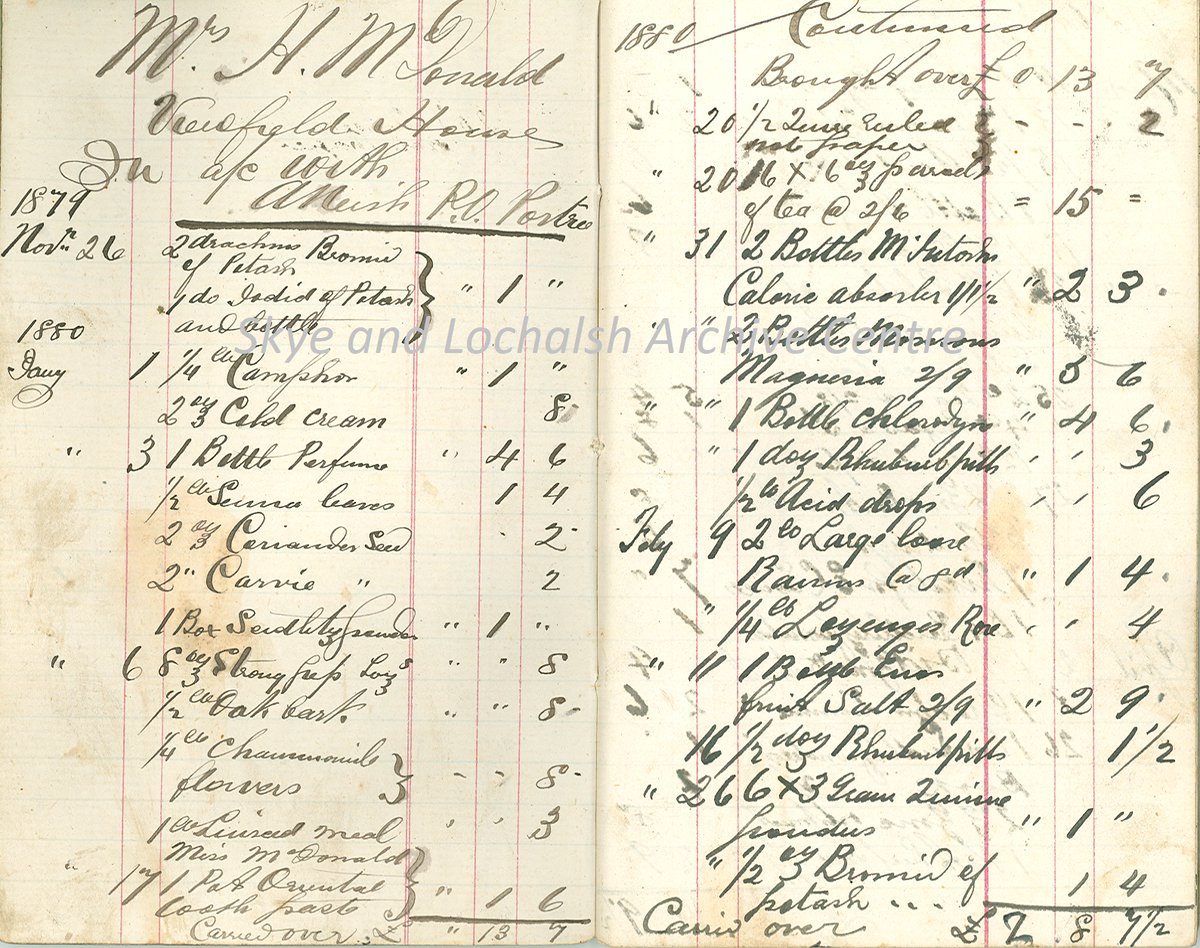 Mrs H. McDonald
Viewfield House
In a/c with
A Meish P.O. Portree
1879
Novr 26 2 drachms Bromid
of Potash
1 do Iodid of Potash " 1 "
and bottle
1880
Jany 1 1/4 lb Camphor " 1 "
2 oz Cold cream 8
" 3 1 Bottle Perfume " 4 6
1/2 lb Senna leaves 1 4
2 oz Coriander Seed 2
2 " Carvie " 2
1 Box Seidlitz powder " 1 "
" 6 8 oz Strong pep Lozs " " 8
1/2 lb Oak bark " " 8
1/4 lb Chammomile
flowers - - 8
1 lb Linseed meal ' ' 3
Miss McDonald
" 17 1 Pot Oriental
tooth paste " 1 6
Carried over £ " 13 7
1880 Continued
Brought over £ 0 13 7
20 1/2 Quire ruled - - 2
not paper
" 20 16 x 6 oz parcels
of tea @ 2/6 = 15 =
" 31 2 Bottles McIntosh
Caloric absorber 1/1 1/2 " 2 3
" " 2 Bottles Morisons
Magnesia 2/9 " 5 6
" " 1 Bottle chlorodyn " 4 6
" 1 doz Rhuburb pills ' ' 3
1/2 lb Acid drops ' ' 6
Feby 9 2 lb Large loose
Raisins @ 8d " 1 4
" 1/4 lb Lozenges Rose ' ' 4
" 11 1 Bottle Enos
fruit Salt 2/9 " 2 9
16 1/2 doz Rhuburb pills 1 1/2
" 26 6 x 3 Gram Quinine
powders " 1 "
" 1/2 oz Bromid of
potash ... 1 4
Carrid over £ 2 8 7 1/2
Skye and Lochalsh Archive Centre